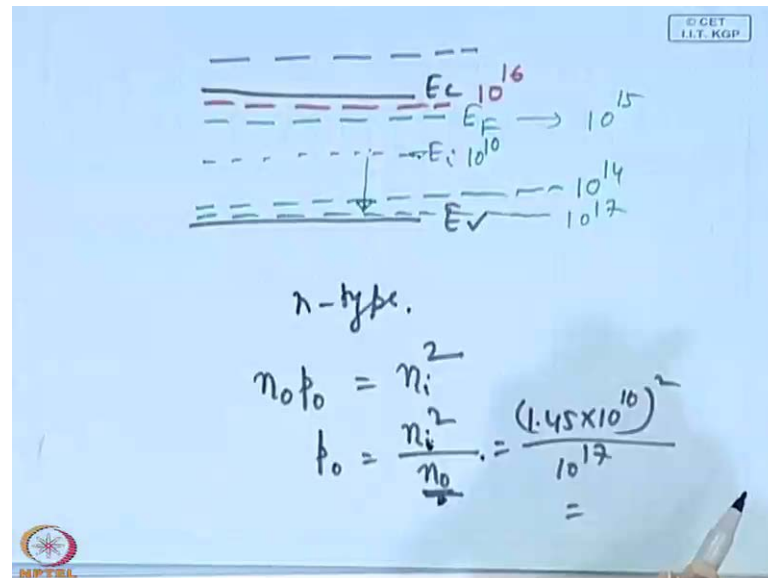 © CET
I.I.T. KGP
Ec 10^16
E_F → 10^15
Ei 10^10
10^14
Ev 10^17
n-type.
n₀p₀ = nᵢ²
p₀ = nᵢ²/n₀ . = (1.45×10^10)²/10^17
=
NPTEL